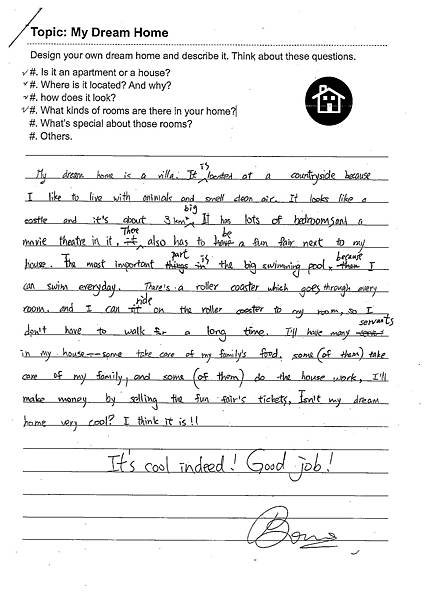 Topic: My Dream Home
Design your own dream home and describe it. Think about these questions.
#. Is it an apartment or a house?
#. Where is it located? And why?
#. how does it look?
#. What kinds of rooms are there in your home?
#. What's special about those rooms?
#. Others.
My dream home is a villa. It is located at a countryside because
I like to live with animals and smell clean air. It looks like a
castle and it's about 3 km² big. It has lots of bedrooms and a
movie theatre in it, There also has to be a fun fair next to my
house. The most important part is the big swimming pool, because I
can swim everyday. There's a roller coaster which goes through every
room, and I can ride on the roller coaster to my room, so I
don't have to walk for a long time. I'll have many servants
in my house—some take care of my family's food, some (of them) take
care of my family, and some (of them) do the house work, I'll
make money by selling the fun fair's tickets, Isn't my dream
home very cool? I think it is!!
It's cool indeed! Good job!